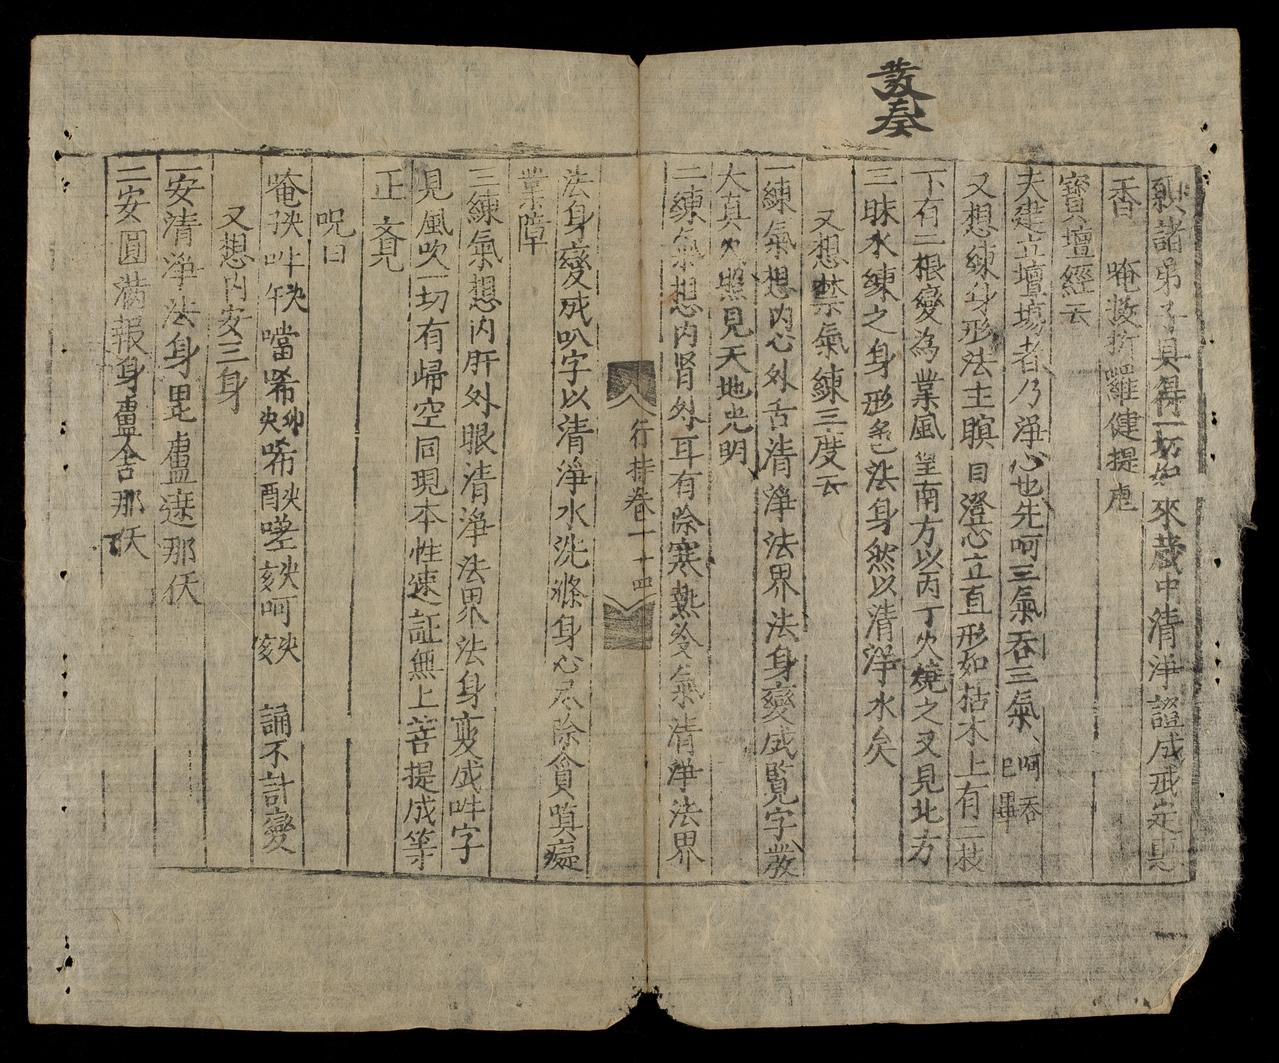 發奏
願諸弟子具每一切如來藏中清淨證成戒定慧
香 唵𠷑折囉健提虎
寶壇經云
夫建立壇塲者乃淨心也先呵三氣吞三氣呵吞已畢
又想練身形法主瞑目澄心立直形如枯木上有二枝
下有二根變為業風望南方以丙丁火燒之又見北方
三昧水練之身形色法身然以清淨水矣
又想禁氣練三度云
一練氣想內心外舌清淨法界法身變成覧字發
大真火照見天地光明
二練氣想內肾外耳有除寒熱冷氣清淨法界
行持卷一 十四
法身變成叭字以清淨水洗滌身心尽除貪嗔癡
業障
三練氣想內肝外眼清淨法界法身変成吽字
見風吹一切有歸空同現本性速証無上菩提成等
正斉
呪曰
唵 吽 噹 唏 唏 呵 誦不計變
又想內安三身
一安清淨法身毘盧遮那仸
二安圓滿報身盧舍那仸